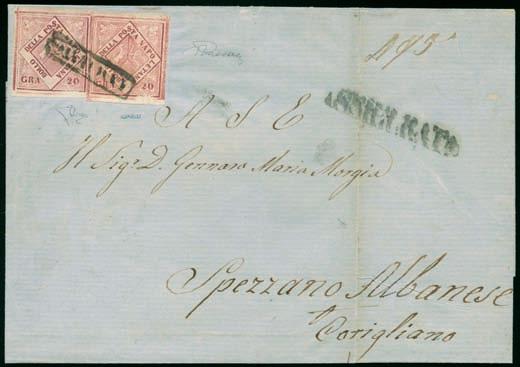 BOLLO DELLA POSTA NAPOLETANA
GRA 20
BOLLO DELLA POSTA NAPOLETANA
GRA 20
ANNULLATO
ASSICURATA
A S E
Il Sigr. D. Gennaro Maria Morgia
Spezzano Albanese
Corigliano